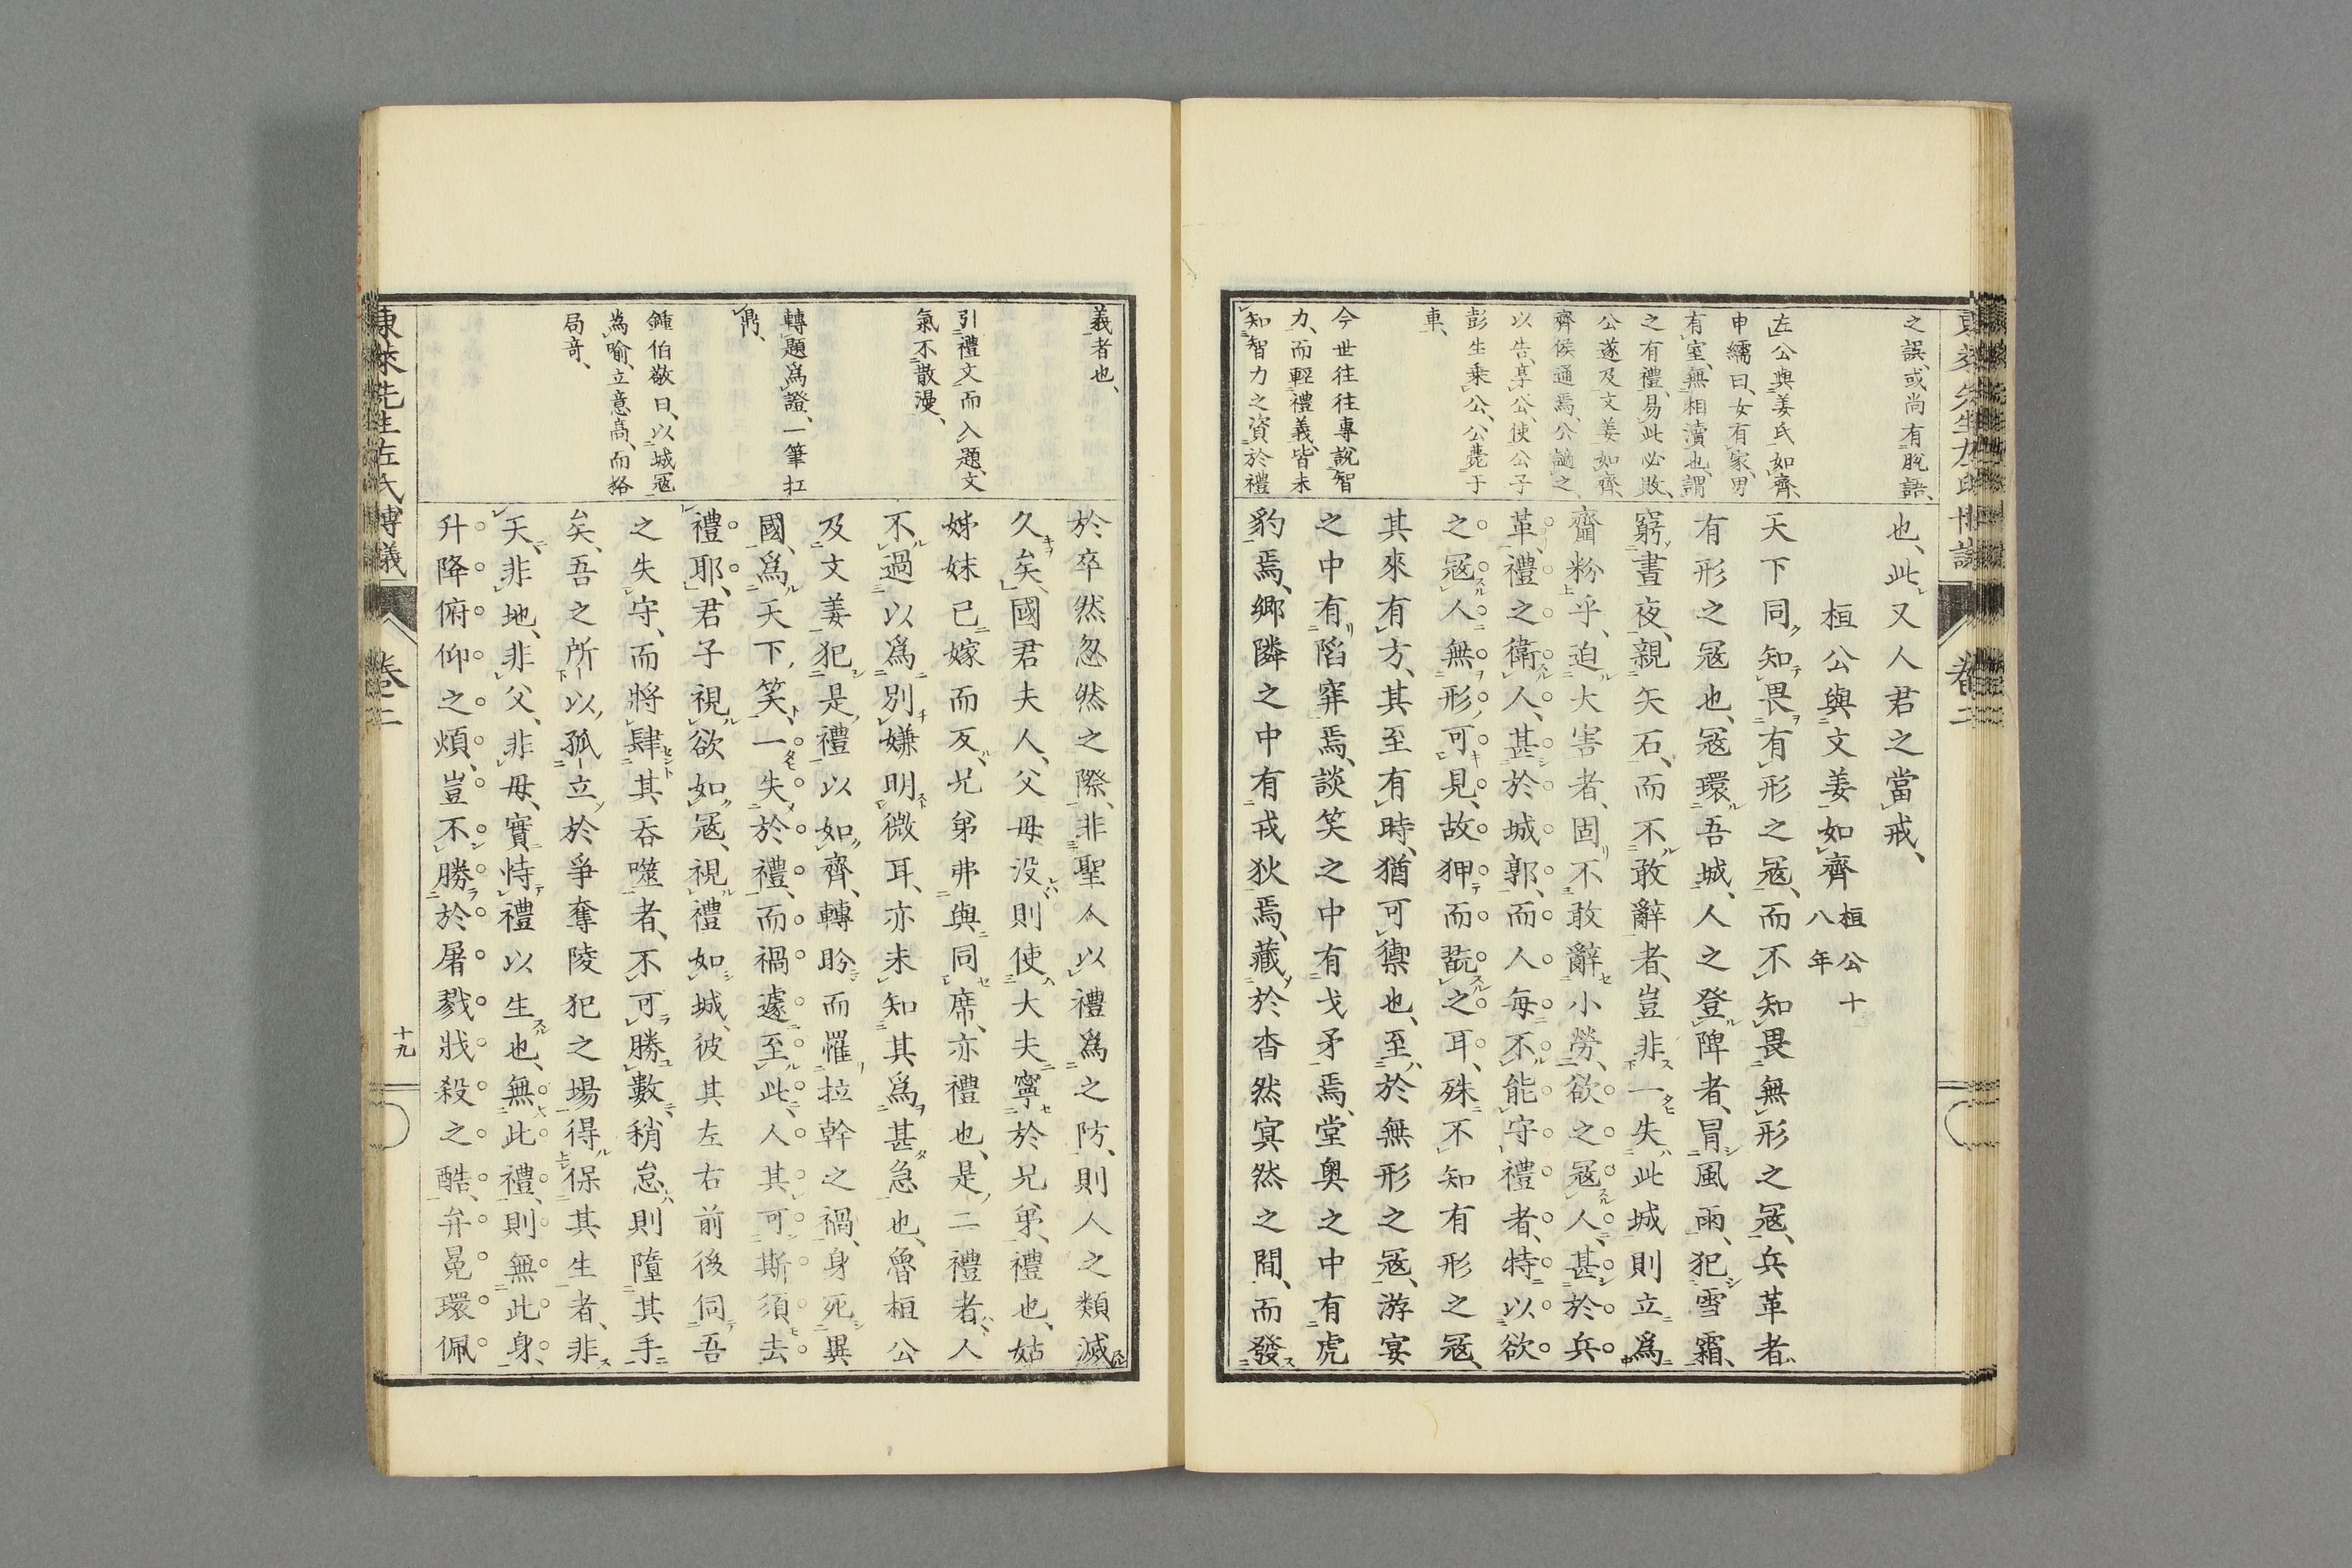 之誤、或尚有脫語、
左公與姜氏如齊、
申繻曰、女有家、男
有室、無相瀆也、謂
之有禮、易此必敗、
公遂及文姜如齊、
齊侯通焉、公謫之、
以告、享公、使公子
彭生乘公、公薨于
車、
今世往往專說智
力、而輕禮義、皆未
知智力之資於禮
也、此又人君之當戒、
桓公與文姜如齊 桓公十八年
天下同知畏有形之寇、而不知畏無形之寇、兵革者
有形之寇也、寇環吾城、人之登陴者、冒風雨、犯雪霜、
窮晝夜、親矢石、而不敢辭者、豈非一失此城則立爲
齏粉乎、迫大害者、固不敢辭小勞、欲之寇人、甚於兵
革、禮之衛人、甚於城郭、而人每不能守禮者、特以欲
之寇人無形可見、故狎而翫之耳、殊不知有形之寇、
其來有方、其至有時、猶可禦也、至於無形之寇、游宴
之中有陷穽焉、談笑之中有戈矛焉、堂奥之中有虎
豹焉、鄉隣之中有戎狄焉、藏於杳然冥然之間、而發
義者也、
引禮文而入題、文
氣不散漫、
轉題爲證、一筆扛
鼎、
鍾伯敬曰、以城寇
為喻、立意高、而格
局奇、
於卒然忽然之際、非聖人以禮爲之防、則人之類滅
久矣、國君夫人、父母没則使大夫寧於兄弟、禮也、姑
姊妹已嫁而反、兄弟弗與同席、亦禮也、是二禮者、人
不過以爲別嫌明微耳、亦未知其爲甚急也、魯桓公
及文姜犯是禮以如齊、轉盼而罹拉幹之禍、身死異
國、爲天下笑、一失於禮、而禍遽至此、人其可斯須去
禮耶、君子視欲如寇、視禮如城、彼其左右前後伺吾
之失守、而將肆其吞噬者、不可勝數、稍怠則墮其手
矣、吾之所以孤立於爭奪陵犯之場得保其生者、非
天、非地、非父、非母、實恃禮以生也、無此禮、則無此身、
升降俯仰之煩、豈不勝於屠戮戕殺之酷、弁冕環佩
東萊先生左氏博議
卷二
十九